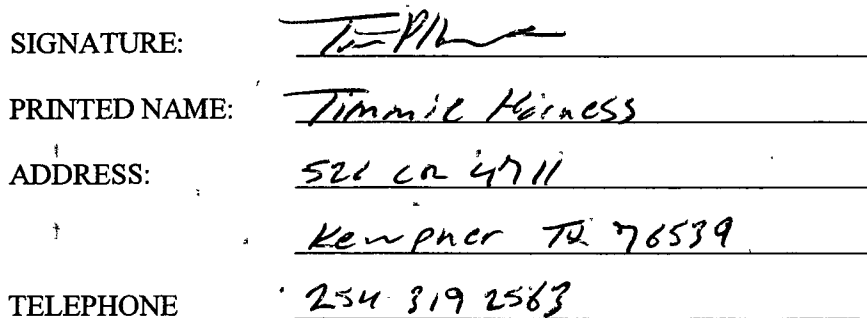 SIGNATURE:
PRINTED NAME: Timmie Harness
ADDRESS: 521 CR 4711
Kempner TX 76539
TELEPHONE 254 319 2563